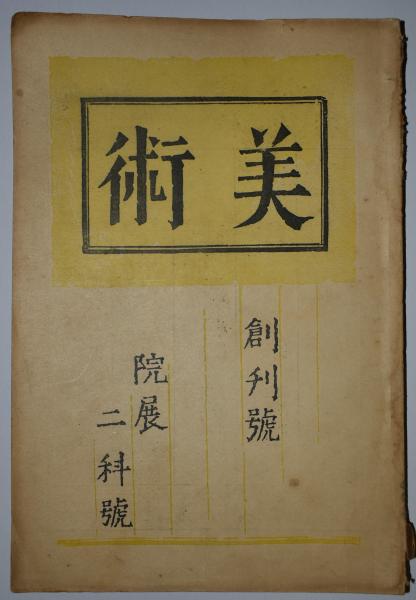 美術
創刊號
院展
二科號